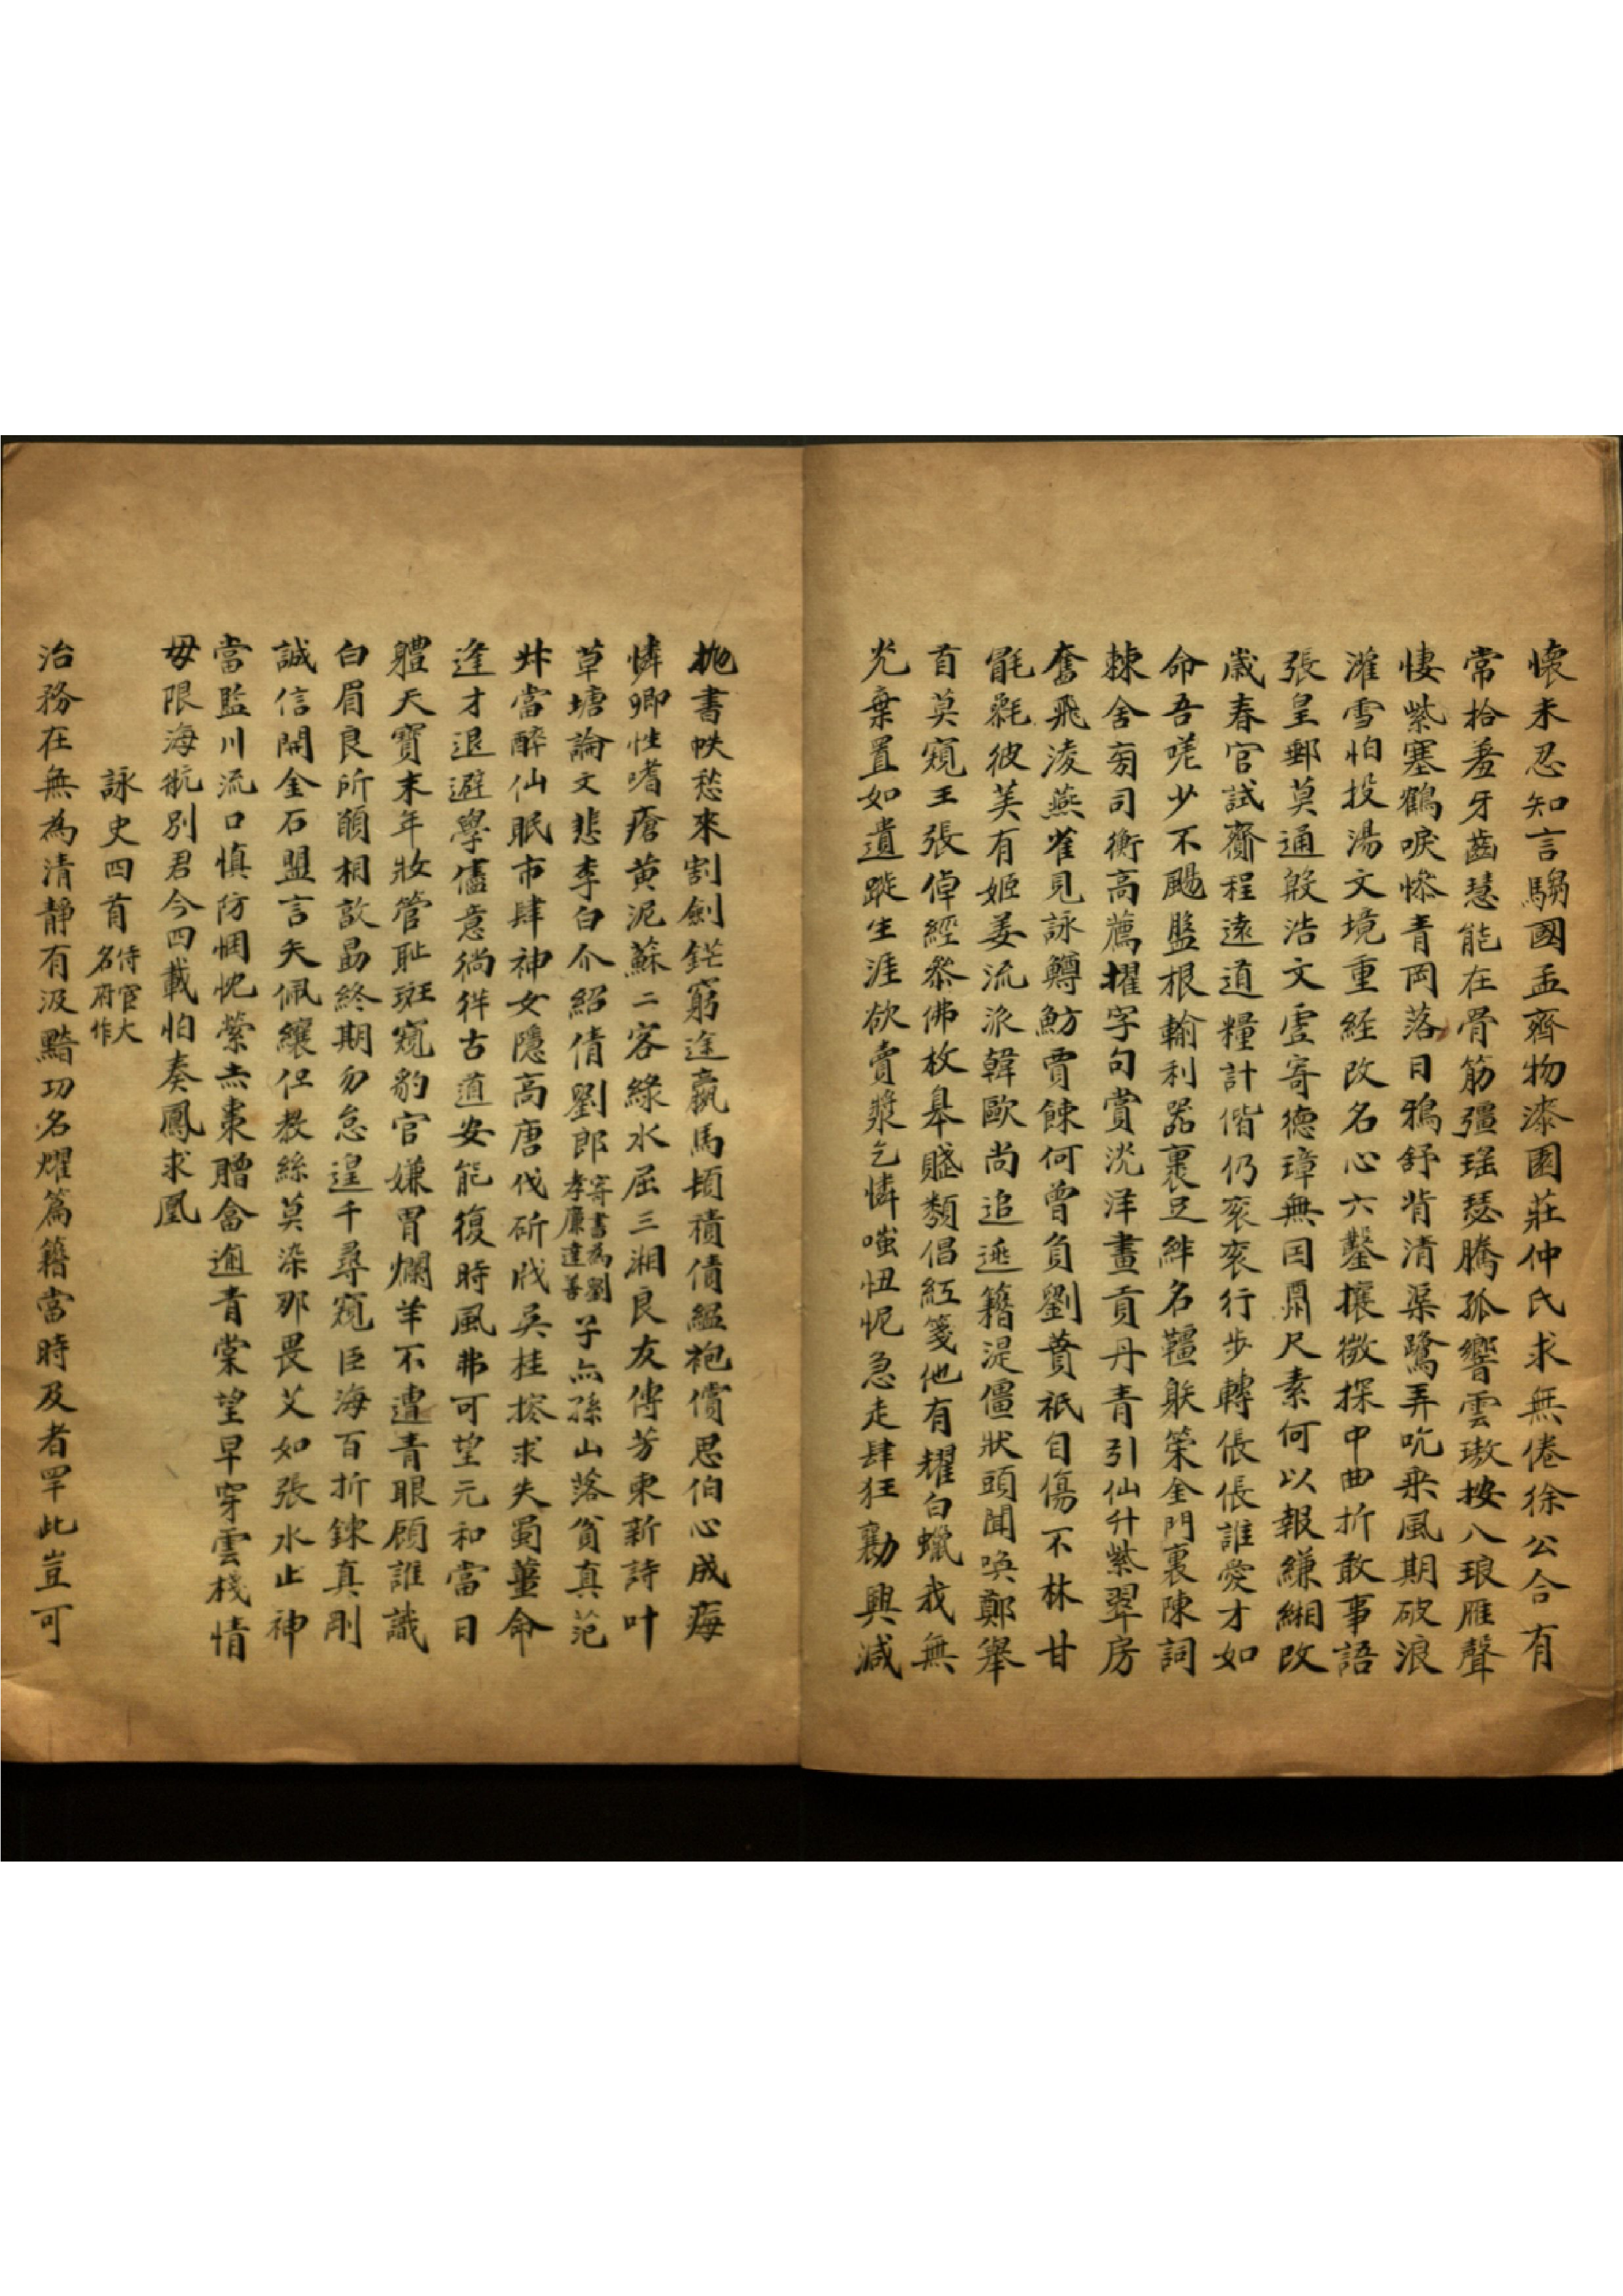 懷未忍知言騶國孟齊物漆園莊仲氏求無倦徐公合有
常拾羞牙齒慧能在骨筋彊瑶瑟騰孤響雲璈按八琅雁聲
悽紫塞鶴唳慘青岡落日鴉舒背清渠鷺弄吭乘風期破浪
濯雪怕投湯文境重経改名心六鑿攘微探中曲折敢事語
張皇郵莫通殷浩文虛寄德璋無因鼎尺素何以報縑緗改
歲春官試齎程遠道糧計偕仍衮衮行步轉倀倀誰愛才如
命吾嗟少不颺盤根輸利器裹足絆名韁躲策金門裏陳詞
棘舍旁司衡高薦擢字句賞沈洋畫貢丹青引仙升紫翠房
奮飛淩燕雀見詠鱒魴賈餗何曾負劉蕡祇自傷不林甘
毷氉彼美有姬姜流派韓歐尚追逐籍湜僵狀頭聞喚鄭舉
首莫窺王張倬經叅佛枚皋賤類倡紅箋他有耀白蠟我無
光棄置如遺蹝生涯欲賣漿乞憐嗤忸怩急走肆狂勷興減
抛書帙愁來割劍鋩窮途羸馬頓積債緼袍償思伯心成痗
憐卿性嗜瘡黄泥蘇二客綠水屈三湘良友傳芳柬新詩叶
草塘論文悲李白介紹倩劉郎寄書為劉孝廉達善子𠅘孫山落貧真范
丼當醉仙眠市肆神女隱高唐伐斫戕吳桂搽求失蜀薑命
逢才退避學儘意徜徉古道安能復時風弗可望元和當日
體天寶末年妝管耻斑窺豹官嫌胃爛羊不遭青眼顧誰識
白眉良所願相敦勗終期勿怠遑千尋窺臣海百折鍊真剛
誠信開金石盟言矢佩纕但教絲莫染那畏艾如張水止神
當監川流口慎防惆怳縈赤棗贈畣逾青棠望早穿雲棧情
毋限海航別君今四載怕奏鳳求凰
詠史四首侍宦大名府作
治務在無為清靜有汲黯功名燿篇籍當時及者罕此豈可